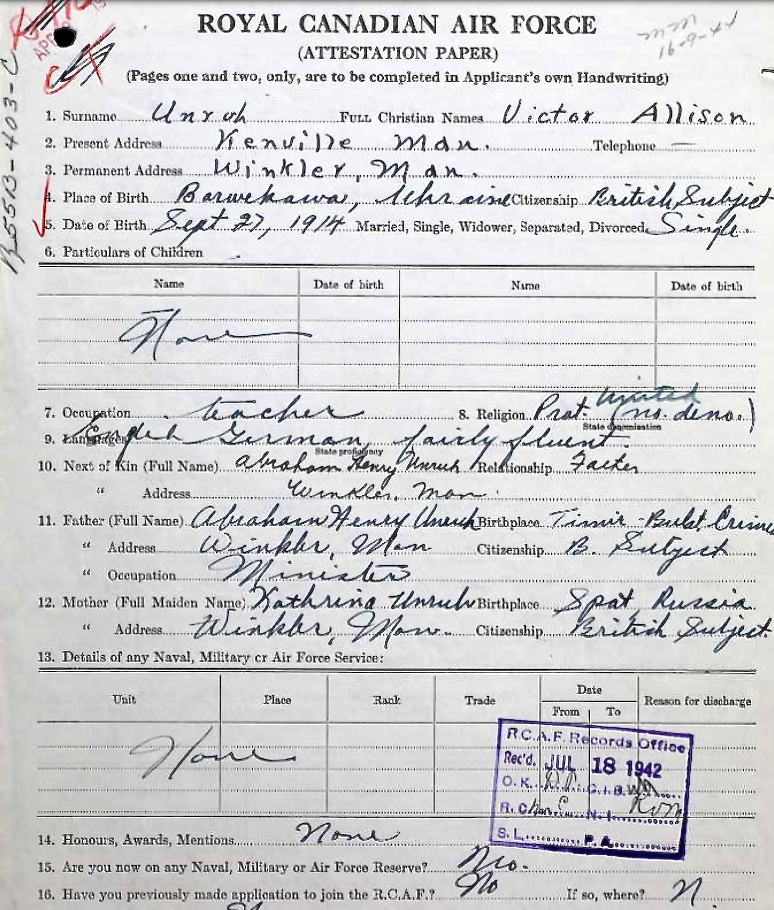 ROYAL CANADIAN AIR FORCE
(ATTESTATION PAPER)
(Pages one and two, only, are to be completed in Applicant's own Handwriting)
16-9-44
1. Surname Unruh Full Christian Names Victor Allison
2. Present Address Kenville Man. Telephone —
3. Permanent Address Winkler, Man.
4. Place of Birth Barwekawa, Ukraine Citizenship British Subject
5. Date of Birth Sept 27, 1914 Married, Single, Widower, Separated, Divorced Single.
6. Particulars of Children
Name Date of birth Name Date of birth
None
United
7. Occupation teacher 8. Religion Prot. (no. deno.)
State denomination
9. Languages English German, fairly fluent.
State proficiency
10. Next of Kin (Full Name) Abraham Henry Unruh Relationship Father
" Address Winkler, Man.
11. Father (Full Name) Abraham Henry Unruh Birthplace Timir-Bulat, Crimea
" Address Winkler, Man Citizenship B. Subject
" Occupation Minister
12. Mother (Full Maiden Name) Kathrina Unruh Birthplace Spat, Russia
" Address Winkler, Man. Citizenship British Subject.
13. Details of any Naval, Military or Air Force Service:
Unit Place Rank Trade Date Reason for discharge
From To
None
R.C.A.F. Records Office
Rec'd. JUL 18 1942
O.K. C.I.B.
R.C. N.I.
S.L. P.A.
14. Honours, Awards, Mentions None
15. Are you now on any Naval, Military or Air Force Reserve? No.
16. Have you previously made application to join the R.C.A.F.? No If so, where? N.